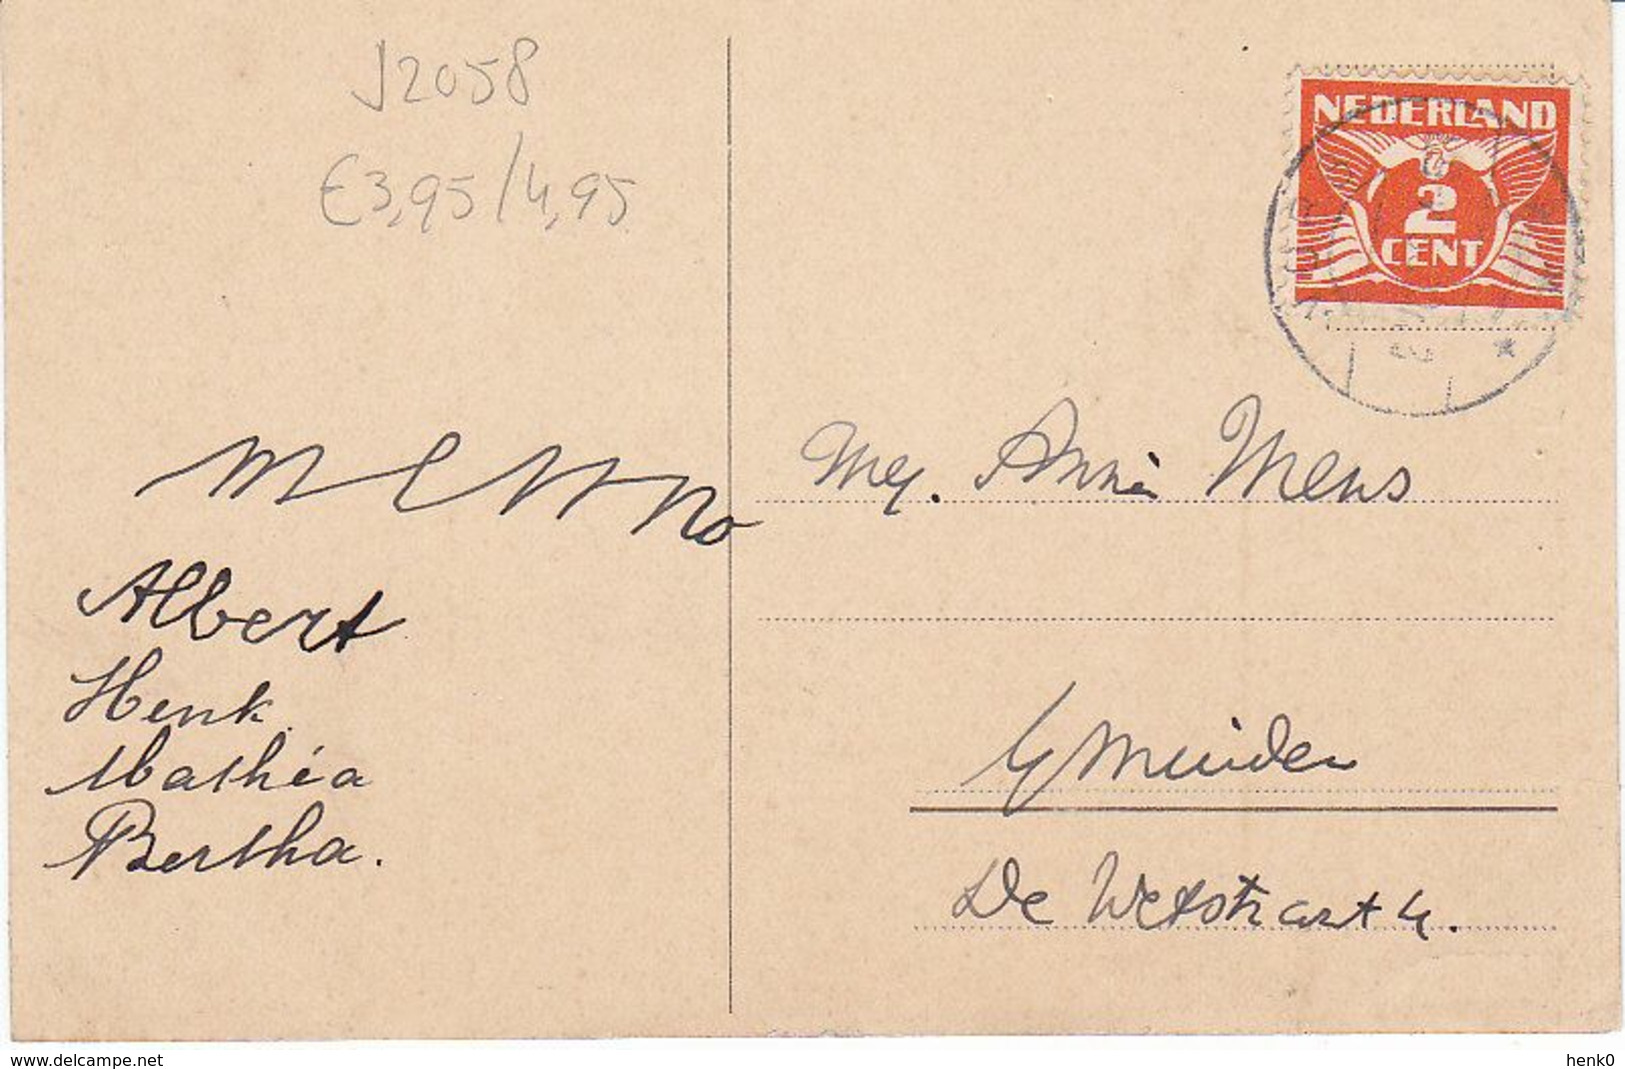 J2058
€3,95/4,95
NEDERLAND
2
CENT
Menno
Albert
Henk
Mathéa
Bertha.
Mej. Annie Mens
IJmuiden
De Wetstraat 4.
www.delcampe.net
henk0